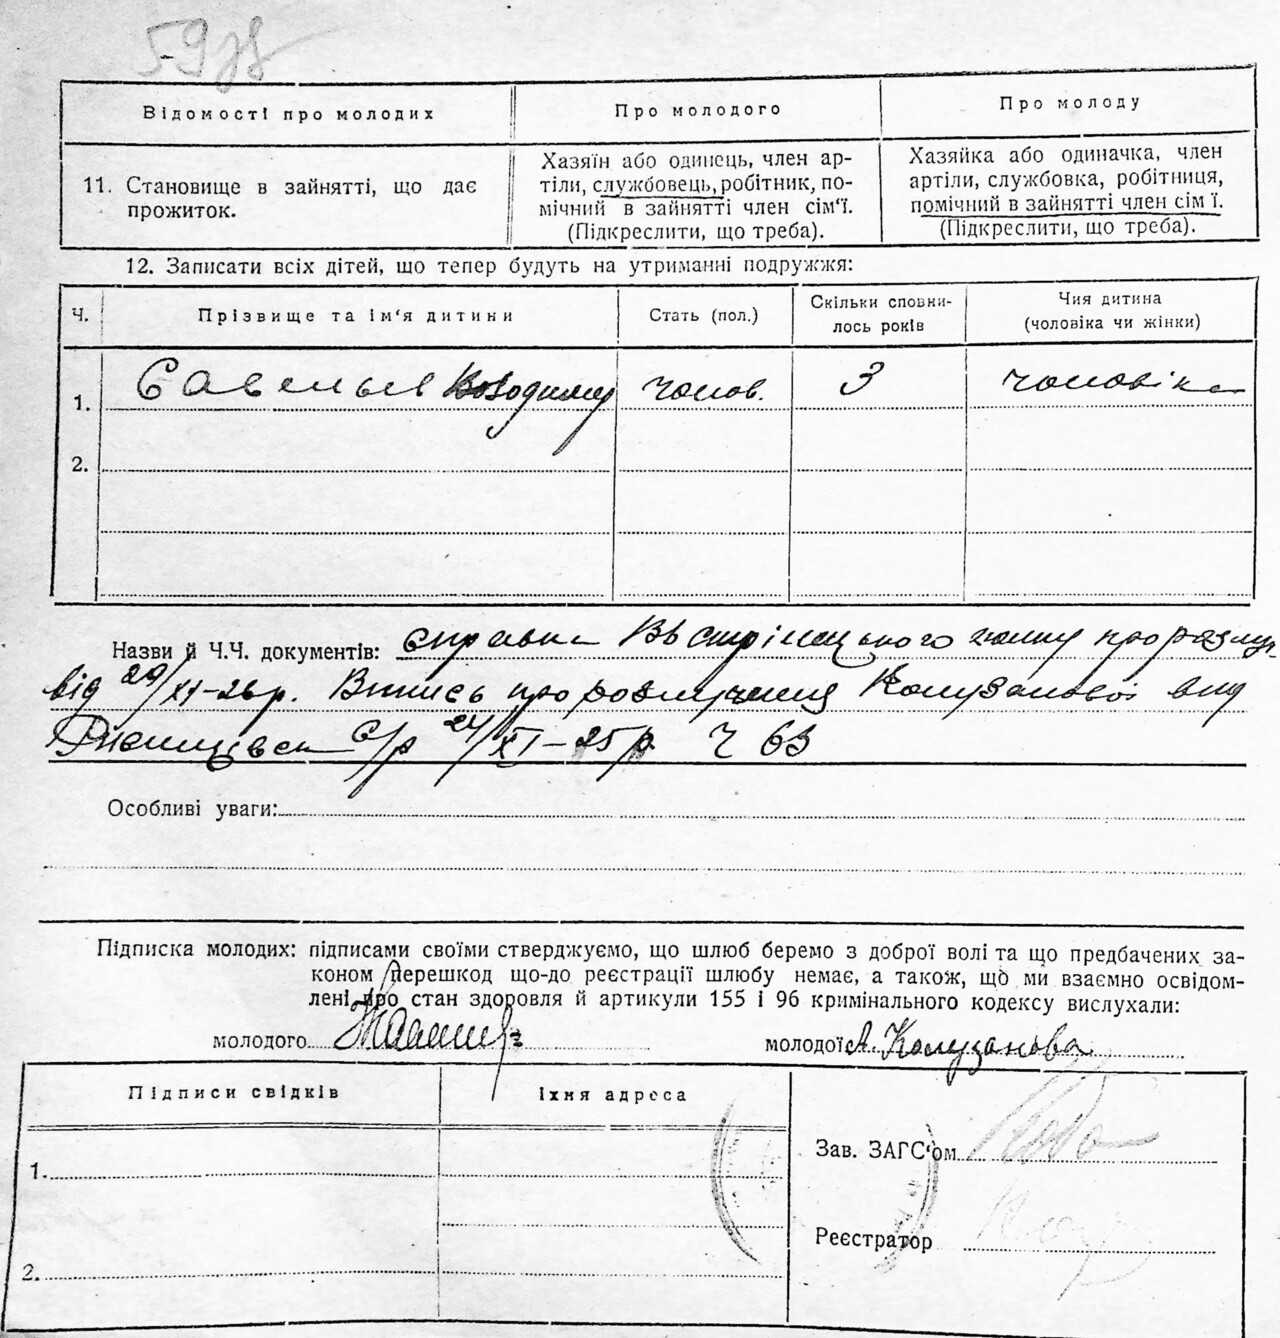 59
Відомості про молодих
Про молодого
Про молоду
11. Становище в зайнятті, що дає
прожиток.
Хазяїн або одинець, член ар-
тіли, службовець, робітник, по-
мічний в зайнятті член сім'ї.
(Підкреслити, що треба).
Хазяйка або одиначка, член
артіли, службовка, робітниця,
помічний в зайнятті член сім ї.
(Підкреслити, що треба).
12. Записати всіх дітей, що тепер будуть на утриманні подружжя:
Ч.
Прізвище та ім'я дитини
Стать (пол.)
Скільки сповни-
лось років
Чия дитина
(чоловіка чи жінки)
1. Савельєв Володимир
чолов.
3
чоловіка
2.
Назви й Ч.Ч. документів: справка про розлуч
від 20/XI-26 р. Випись про розлучення Колузанової вид
с/р 24/XI-25 р. Ч 63
Особливі уваги:
Підписка молодих: підписами своїми стверджуємо, що шлюб беремо з доброї волі та що предбачених за-
коном перешкод що-до реєстрації шлюбу немає, а також, що ми взаємно освідом-
лені про стан здоровля й артикули 155 і 96 кримінального кодексу вислухали:
молодого
молодої А. Колузанова
Підписи свідків
Їхня адреса
1.
2.
Зав. ЗАГС'ом
Реєстратор